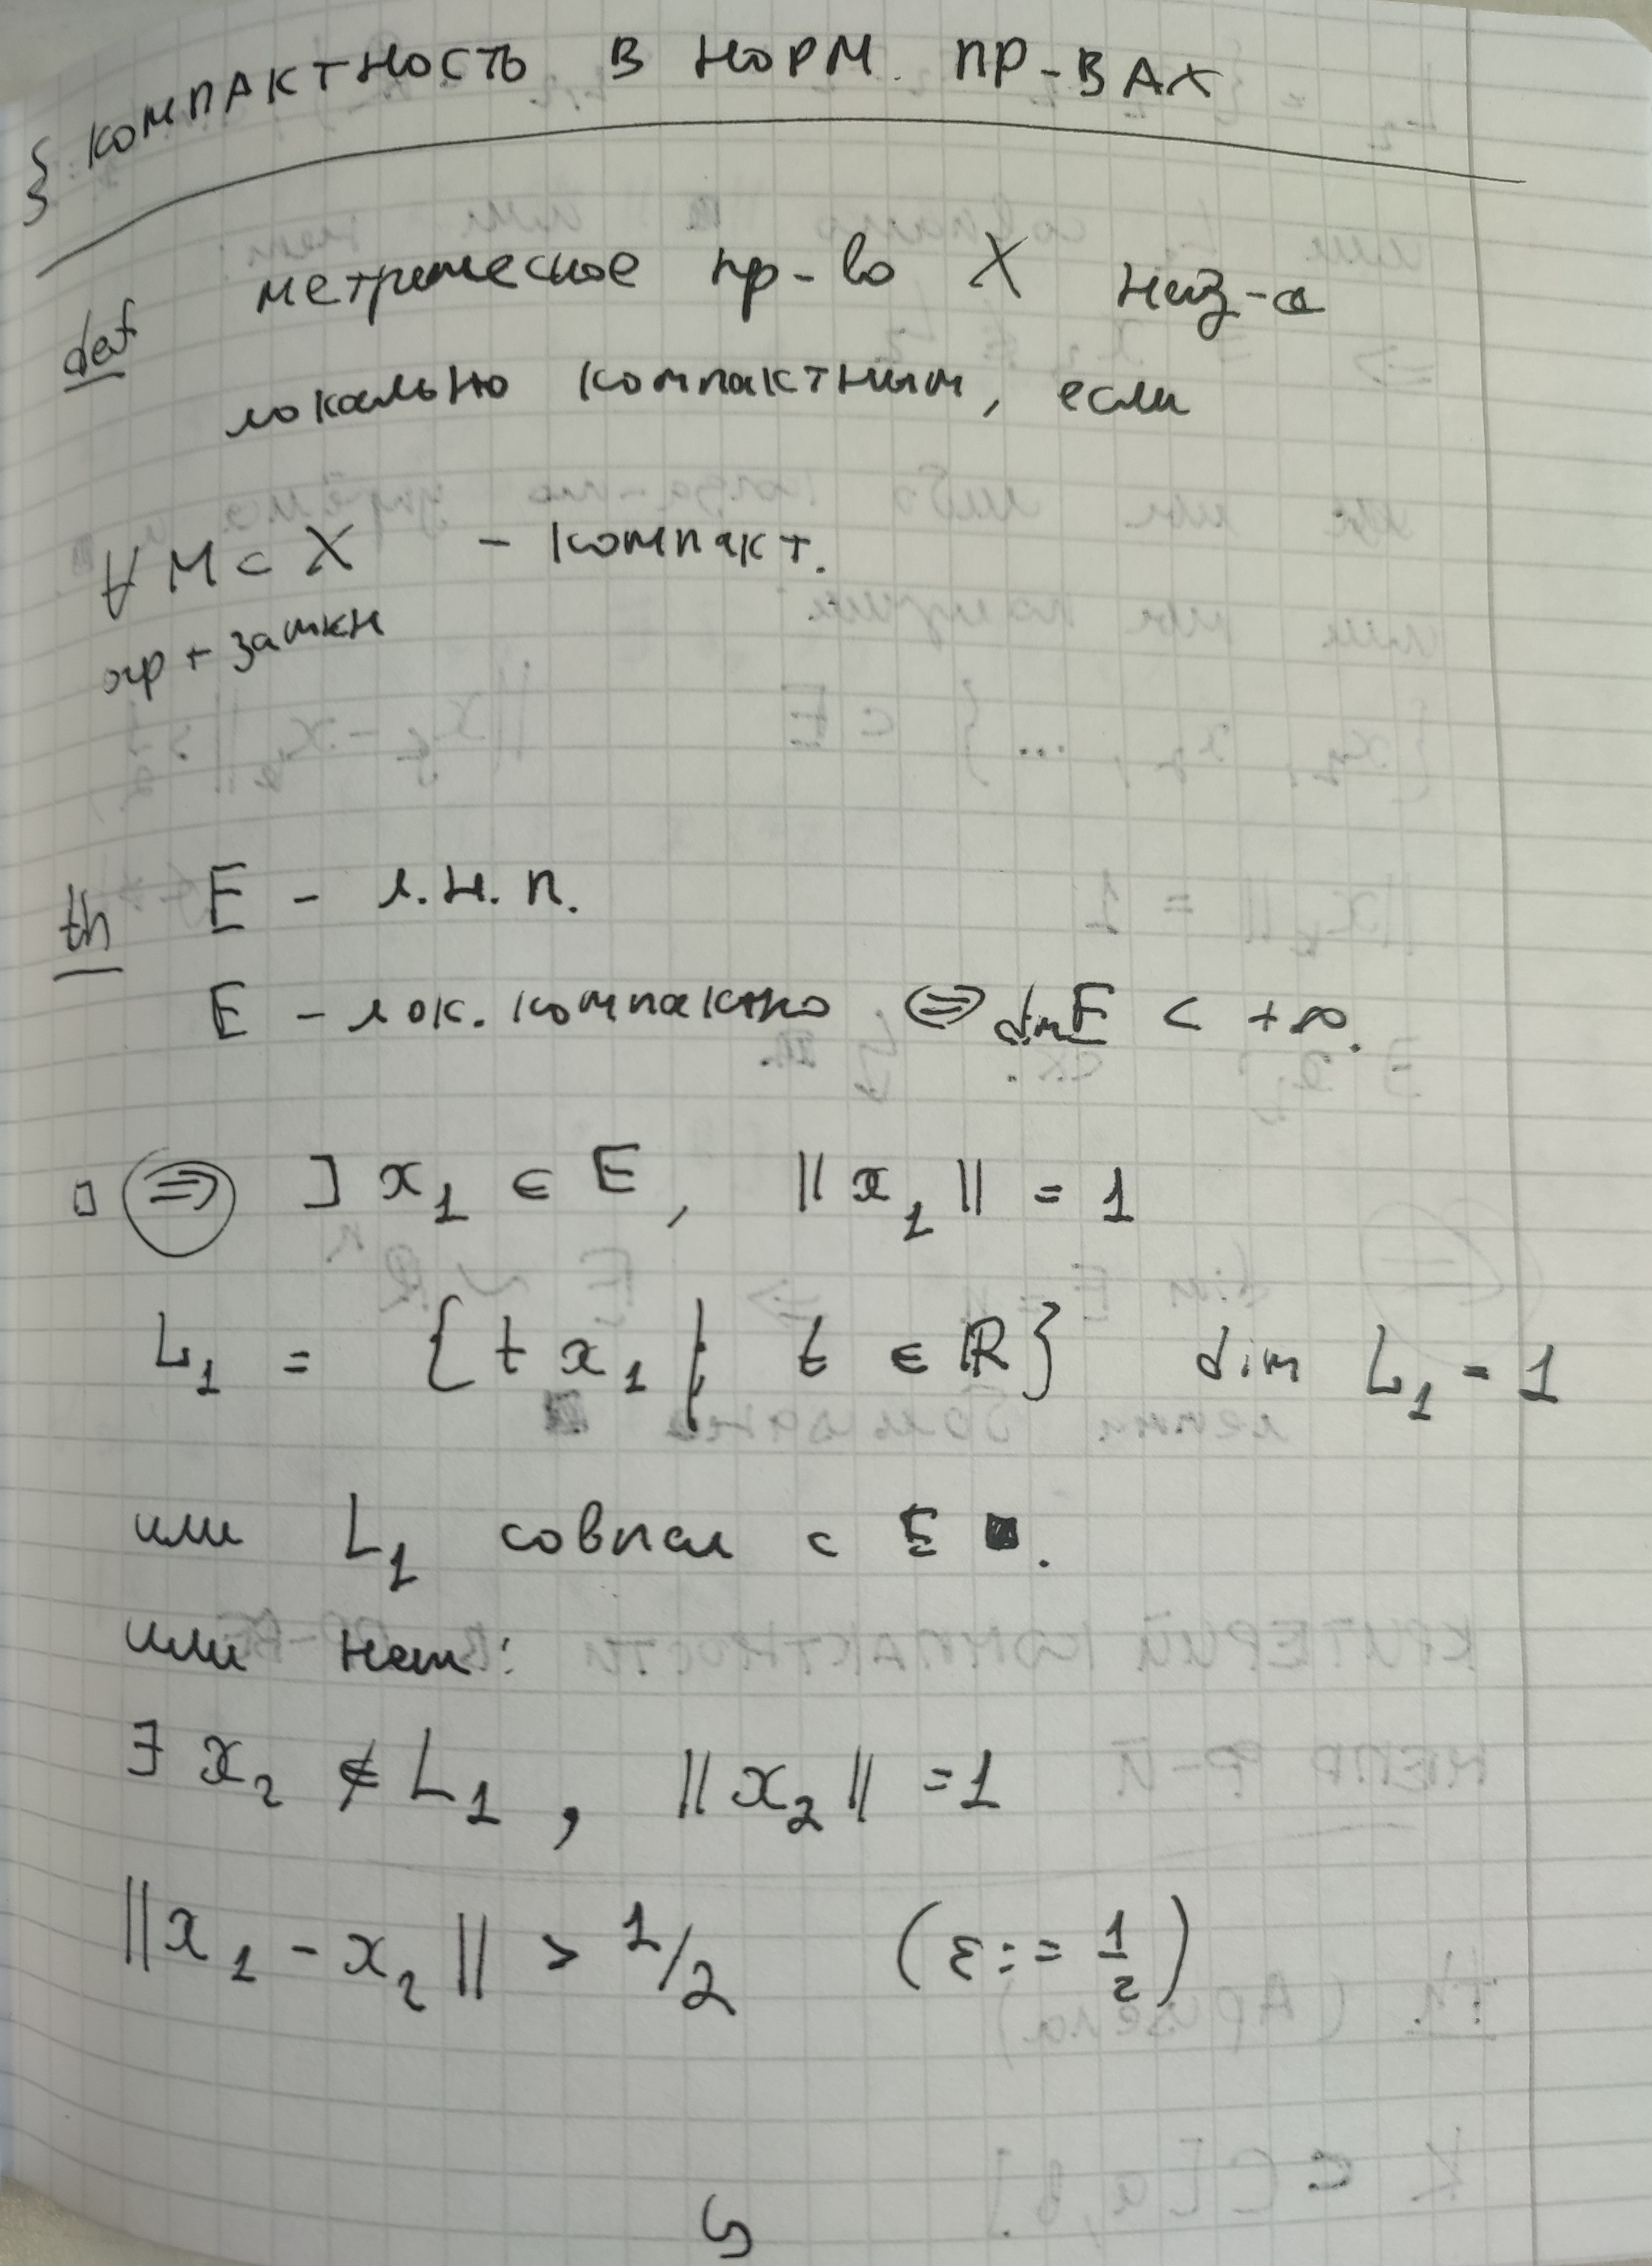 § КОМПАКТНОСТЬ В НОРМ. ПР-ВАХ
def метрическое пр-во X наз-ся
локально компактным, если
∀ M ⊂ X - компакт.
огр + замкн
th E - л.н.п.
E - лок. компактно ⇔ dim E < +∞.
□ ⇒ ] x₁ ∈ E, ||x₁|| = 1
L₁ = {t x₁ | t ∈ ℝ} dim L₁ = 1
или L₁ совпал с E.
или нет:
∃ x₂ ∉ L₁, ||x₂|| = 1
||x₁ - x₂|| > 1/2 (ε := 1/2)